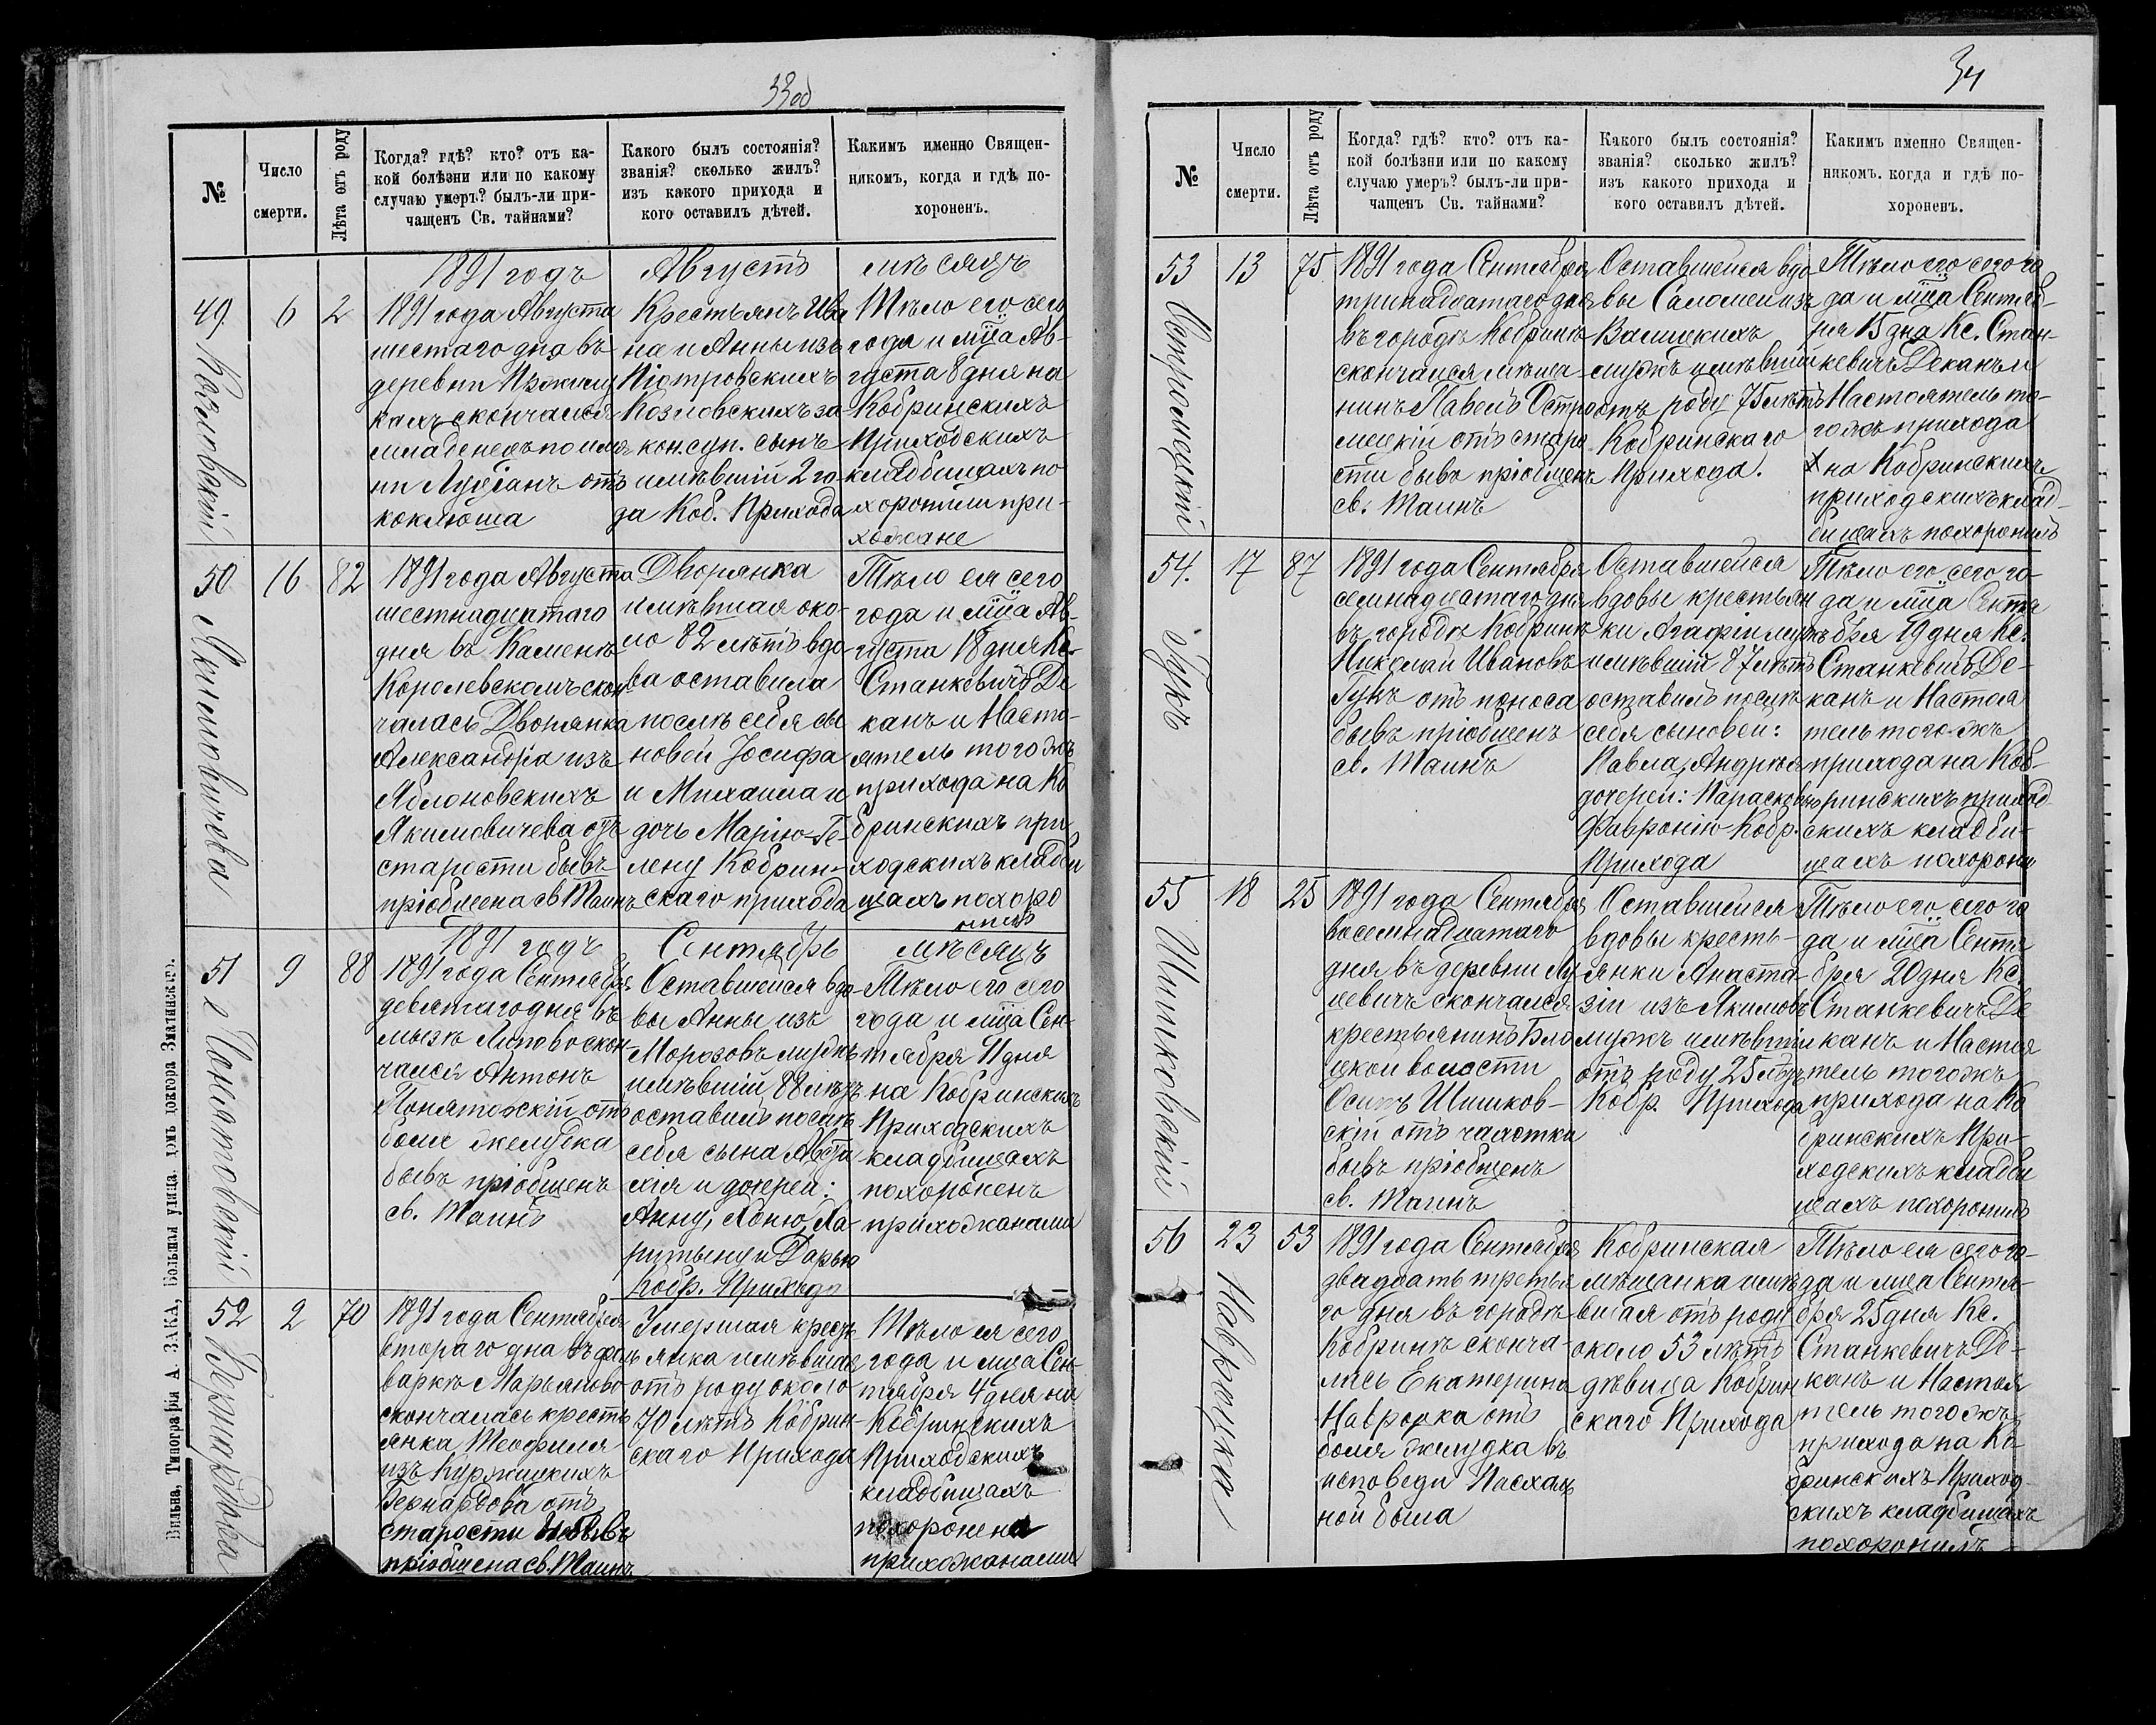 33об
№
Число
смерти.
Лѣта отъ роду
Когда? гдѣ? кто? отъ ка-
кой болѣзни или по какому
случаю умеръ? былъ-ли при-
чащенъ Св. тайнами?
Какого былъ состоянія?
званія? сколько жилъ?
изъ какого прихода и
кого оставилъ дѣтей.
Какимъ именно Священ-
никомъ, когда и гдѣ по-
хороненъ.
1891 годъ Августъ мѣсяцъ
49. Козловскій
6
2
1891 года Августа
шестаго дня въ
деревни
кахъ скончался
младенецъ по име
ни Луціанъ отъ
коклюша
Крестьянъ Ива
на и Анны изъ
Піотровскихъ
Козловскихъ за
кон. суп. сынъ
имѣвшій 2 го-
да Коб. Прихода
Тѣло его сего
года и мца Ав-
густа 8 дня на
Кобринскихъ
Приходскихъ
кладбищахъ по
хоронили при-
хожане
50 Якимовичева
16
82
1891 года Августа
шестнадцатаго
дня въ Каменкѣ
Королевскомъ скон
чалась Дворянка
Александра изъ
Яблоновскихъ
Якимовичева отъ
старости бывъ
пріобщена св Таинъ
Дворянка
имѣвшая око-
ло 82 лѣтъ вдо-
ва оставила
послѣ себя сы
новей Іосифа
и Михаила и
дочь Марію-Ге-
лену Кобрин-
скаго прихода
Тѣло ея сего
года и мца Ав-
густа 18 дня Кс.
Станкевичъ Де
канъ и Насто-
ятель того жъ
прихода на Ко
бринскихъ при
ходскихъ кладби
щахъ похоро
нилъ
1891 годъ Сентябрь мѣсяцъ
51 Понятовскій
9
88
1891 года Сентября
девятаго дня въ
мызѣ Липово скон-
чался Антонъ
Понятовскій отъ
боли желудка
бывъ пріобщенъ
св. Таинъ
Оставшейся вдо-
вы Анны изъ
Морозовъ мужъ
имѣвшій 88 лѣтъ
оставилъ послѣ
себя сына Авста
хія и дочерей:
Анну, Ха-
ритыну и Дарью
Кобр. Прихода
Тѣло его сего
года и мца Сен-
тября 11 дня
на Кобринскихъ
Приходскихъ
кладбищахъ
похороненъ
прихожанами
52 Бернардова
2
70
1891 года Сентября
втораго дня въ фоль
варкѣ Марьяново
скончалась кресть
янка Теофиля
изъ
Бернардова отъ
старости
пріобщена св. Таинъ
Умершая кресть
янка имѣвшая
отъ роду около
70 лѣтъ Кобрин-
скаго Прихода
Тѣло ея сего
года и мца Сен-
тября 4 дня на
Кобринскихъ
Приходскихъ
кладбищахъ
похоронена
прихожанами
Вильна, Типографія А. ЗАКА, Большая улица, домъ доктора Зматинскаго.
34
№
Число
смерти.
Лѣта отъ роду
Когда? гдѣ? кто? отъ ка-
кой болѣзни или по какому
случаю умеръ? былъ-ли при-
чащенъ Св. тайнами?
Какого былъ состоянія?
званія? сколько жилъ?
изъ какого прихода и
кого оставилъ дѣтей.
Какимъ именно Священ-
никомъ. когда и гдѣ по-
хороненъ.
53 Остромецкій
13
75
1891 года Сентября
тринадцатаго дня
въ городѣ Кобринѣ
скончался мѣща-
нинъ Павелъ Остро
мецкій отъ старо
сти бывъ пріобщенъ
св. Таинъ
Оставшейся вдо
вы Саломеи изъ
Валицкихъ
мужъ имѣвшій
отъ роду 75 лѣтъ
Кобринскаго
Прихода.
Тѣло его сего го
да и мца Сентяб-
ря 15 дня Кс. Стан-
кевичъ Деканъ и
Настоятель то-
гожъ прихода
на Кобринскихъ
приходскихъ клад-
бищахъ похоронилъ
54. Гукъ
17
87
1891 года Сентября
семнадцатаго дня
въ городѣ Кобринѣ
Николай Ивановъ
Гукъ отъ поноса
бывъ пріобщенъ
св. Таинъ
Оставшейся
вдовы крестьян
ки Агафіи мужъ
имѣвшій 87 лѣтъ
оставилъ послѣ
себя сыновей:
Павла, Андрея
дочерей: Парасковью
Февронію Кобр.
Прихода
Тѣло его сего го-
да и мца Сентя
бря 19 дня Кс.
Станкевичъ Де-
канъ и Настоя
тель того-жъ
прихода на Коб-
ринскихъ приход
скихъ кладби-
щахъ похорони
55 Шишковскій
18
25
1891 года Сентября
восемнадцатаго
дня въ деревни Лу
цевичъ скончался
крестьянинъ Бло
цкой волости
Осипъ Шишков-
скій отъ чахотки
бывъ пріобщенъ
св. Таинъ
Оставшейся
вдовы кресть-
янки Анаста-
зіи изъ Якимовъ
мужъ имѣвшій
отъ роду 25 лѣтъ
Кобр. Прихода
Тѣло его сего го
да и мца Сентя
бря 20 дня Кс.
Станкевичъ Де
канъ и Настоя
тель тогожъ
прихода на Ко
бринскихъ При-
ходскихъ кладби
щахъ похоронилъ
56 Навроцка
23
53
1891 года Сентября
двадцать третья
го дня въ городѣ
Кобринѣ сконча-
лась Екатерина
Навроцка отъ
боли желудка въ
исповеди Пасхаль
ной была
Кобринская
мѣщанка имѣ
вшая отъ роду
около 53 лѣтъ
дѣвица Кобрин
скаго Прихода
Тѣло ея сего го-
да и мца Сентя-
бря 25 дня Кс.
Станкевичъ Де-
канъ и Настоя
тель того жъ
прихода на Ко
бринскихъ Приход-
скихъ кладбищахъ
похоронилъ